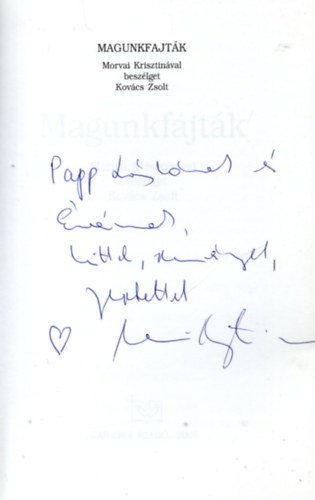 MAGUNKFAJTÁK
Morvai Krisztinával
beszélget
Kovács Zsolt
Magunkfajták
Papp Lászlónak és
Évának,
hittel, reménnyel,
szeretettel
♡ Morvai Krisztina